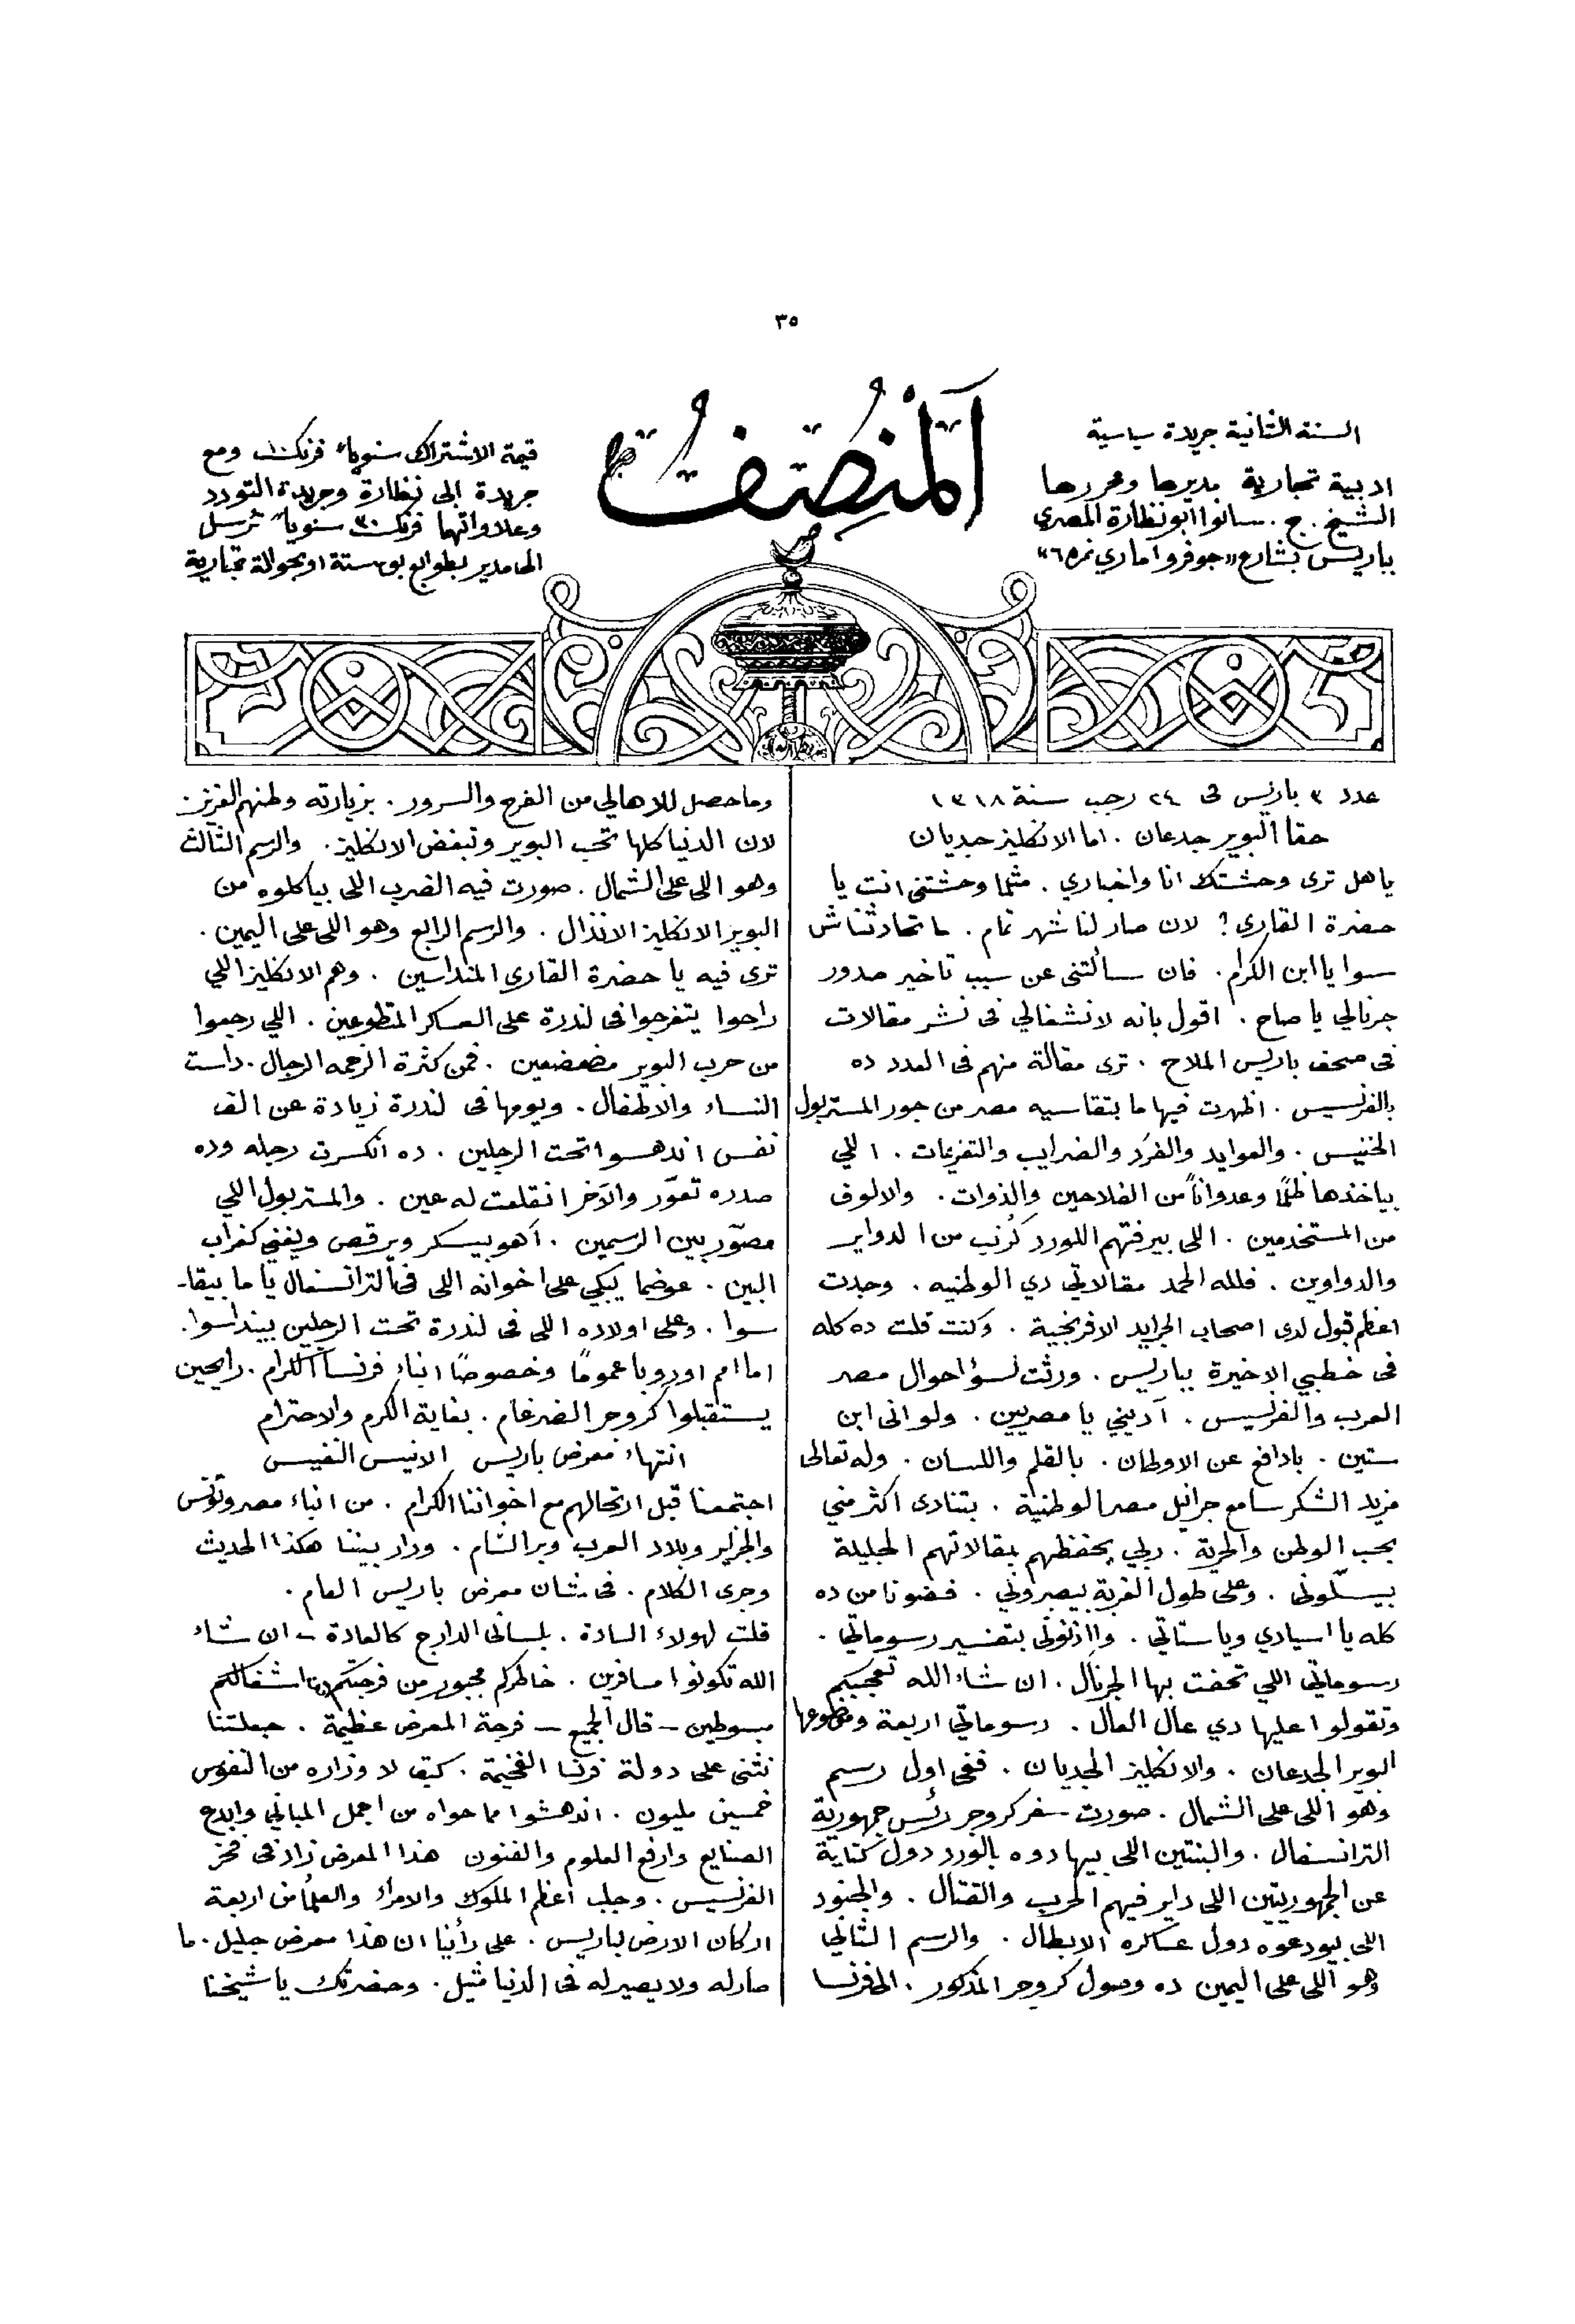 ٣٥
اَلْمُنْصِفُ
السنة الثانية جريدة سياسية
ادبية تجارية مديرها ومحررها
الشيخ . ج . سانوا ابو نظارة المصري
بباريس بشارع «جوفروا ماري نمره ٦»
قيمة الاشتراك سنوياً فرنك ١٠ ومع
جريدة ابى نظارة وجريدة التودد
وعلاواتهما فرنك ٣٠ سنوياً ترسل
الى المدير بطوابع بوستة او بحوالة تجارية
عدد ٣ باريس فى ٢٤ رجب سنة ١٣١٨
حقا البوير جدعان . اما الانكليز جديان
يا هل ترى وحشتك انا واخباري . مثلما وحشتنى انت يا
حضرة القارى ؟ لان صار لنا شهر تمام . ما تحادثناش
سوا يا ابن الكرام . فان سألتنى عن سبب تاخير صدور
جرنالي يا صاح . اقول بانه لانشغالي فى نشر مقالات
فى صحف باريس الملاح . ترى مقالة منهم فى العدد ده
بالفرنسيس . اظهرت فيها ما بتقاسيه مصر من جور المستر بول
الخنيس . والعوايد والفرَد والضرايب والتغريمات . اللي
بياخذها ظلمًا وعدواناً من الفلاحين والذوات . والالوف
من المستخدمين . اللى بيرفتهم اللورد كُرنب من الدواير
والدواوين . فلله الحمد مقالاتي دي الوطنيه . وجدت
اعظم قبول لدى اصحاب الجرايد الافرنجية . وكنت قلت ده كله
فى خطبي الاخيرة بباريس . ورثت لسؤ احوال مصر
العرب والفرنسيس . آديني يا مصريين . ولو انى ابن
ستين . بادافع عن الاوطان . بالقلم واللسان . وله تعالى
مزيد الشكر سامع جرانيل مصر الوطنية . بتنادى اكثر مني
بحب الوطن والحرية . ربي يحفظهم بمقالاتهم الجليلة
بيسلّونى . وعلى طول الغربة بيصبروني . فضونا من ده
كله يا اسيادي ويا ستاتي . وااذنونى بتفسير رسوماتي .
رسوماتي اللي تحفت بها الجرنال . ان شاء الله تعجبكم
وتقولوا عليها دي عال العال . رسوماتي اربعة وموضوعها
البوير الجدعان . والانكليز الجديان . ففى اول رسم
وهوّ اللى على الشمال . صورت سفر كروجر رئس جمهورية
الترانسفال . والبنتين اللى بيهادوه بالورد دول كناية
عن الجمهوريتين اللى داير فيهم الحرب والقتال . والجنود
اللى بيودعوه دول عساكره الابطال . والرسم الثاني
وهو اللى على اليمين ده وصول كروجر المذكور . الى فرنسا
وما حصل للاهالي من الفرح والسرور . بزيارته وطنهم العزيز .
لان الدنيا كلها تحب البوير وتبغض الانكليز . والرسم الثالث
وهو اللى على الشمال . صورت فيه الضرب اللى بياكلوه من
البوير الانكليز الانذال . والرسم الرابع وهو اللى على اليمين .
ترى فيه يا حضرة القارى المنداسين . وهم الانكليز اللي
راحوا يتفرجوا فى لندرة على العسكر المتطوعين . اللي رجعوا
من حرب البوير مضعضعين . فمن كثرة الزحمه الرجال . داست
النساء والاطفال . ويومها فى لندرة زيادة عن الف
نفس اندهسوا تحت الرجلين . ده انكسرت رجله وده
صدره تعوّر والآخر انقلعت له عين . والمستر بول اللي
مصوّر بين الرسمين . اهو بيسكر ويرقص ويغني كغراب
البين . عوضما يبكي على اخوانه اللى فى الترانسفال ياما بيقا-
سوا . وعلى اولاده اللى فى لندرة تحت الرجلين بينداسوا .
اما امم اوروبا عمومًا وخصوصًا ابناء فرنسا الكرام . رايحين
يستقبلوا كروجر الضرغام . بغاية الكرم والاحترام
انتهاء معرض باريس الانيس النفيس
اجتمعنا قبل ارتحالهم مع اخواننا الكرام . من ابناء مصر وتونس
والجزاير وبلاد العرب وبر الشام . ودار بيننا هكذا الحديث
وجرى الكلام . فى شان معرض باريس العام .
قلت لهولاء السادة . بلسانى الدارج كالعادة – ان شاء
الله تكونوا مسافرين . خاطركم مجبور من فرجتكم اشغالكم
مبسوطين – قال الجميع – فرجة المعرض عظيمة . جعلتنا
نثنى على دولة فرنسا الفخيمة . كيف لا وزاره من النفوس
خمسين مليون . اندهشوا مما حواه من اجمل المباني وابدع
الصنايع وارفع العلوم والفنون هذا المعرض زاد فى فخر
الفرنسيس . وجلب اعظم الملوك والامراء والعلماء من اربعة
اركان الارض لباريس . على رأينا ان هذا معرض جليل . ما
صار له ولا يصير له فى الدنيا مثيل . وحضرتك يا شيخنا